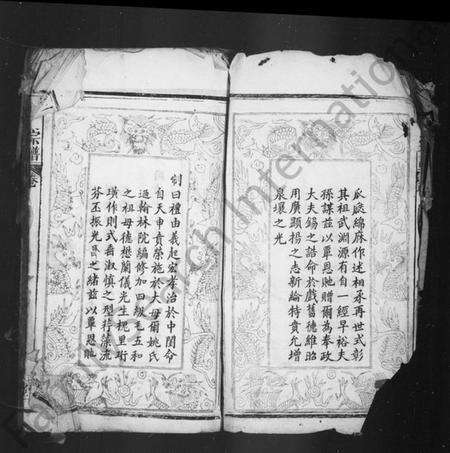 瓜瓞緜麻作述相承再世式彰
其祖武淵源有自一經早裕夫
孫謀茲以覃恩貤贈爾為奉政
大夫錫之誥命於戲舊德維昭
用廣顯揚之志新綸特賁允增
泉壤之光
制曰禮由義起宏孝治於中閨令
自天申賁榮施於大母爾姚氏
迺翰林院編修加四級毛五和
之祖母德懋蘭儀光生珮里珩
璜作則式垂淑慎之型蘋藻流
芬丕振光之緒茲以覃恩貤
宗譜